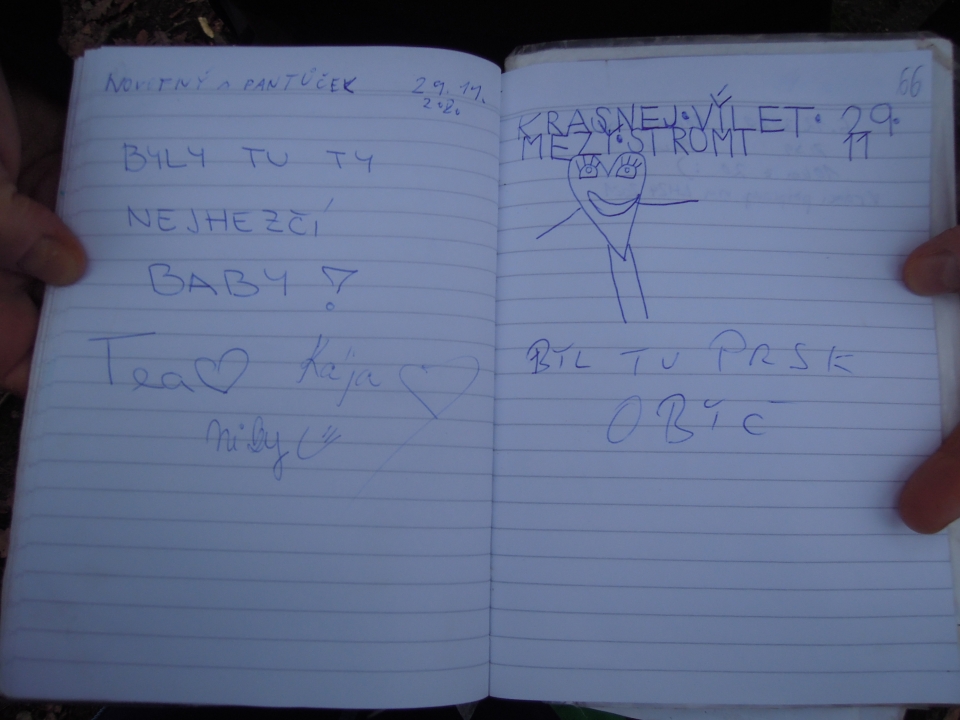 NOVITNÝ A PANTŮČEK 29.11.
2020
BYLY TU TY
NEJHEZČÍ
BABY !
Tea Kája
66
KRASNEJ·VÝLET· 29.
MEZI·STROMI 11
BYL TU PRSK
OBYČ